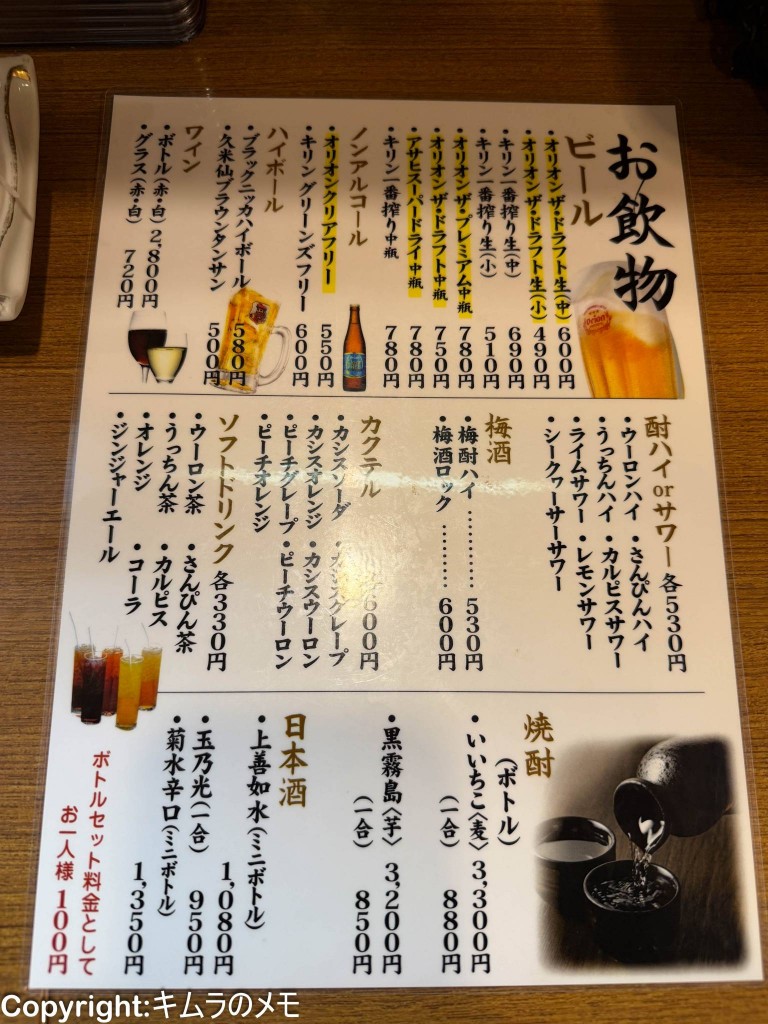 お飲物
ビール
・オリオンザ・ドラフト生(中) 600円
・オリオンザ・ドラフト生(小) 490円
・キリン一番搾り生(中) 690円
・キリン一番搾り生(小) 510円
・オリオンザ・プレミアム中瓶 780円
・オリオンザ・ドラフト中瓶 750円
・アサヒスーパードライ中瓶 780円
・キリン一番搾り中瓶 780円
ノンアルコール
・オリオンクリアフリー 550円
・キリングリーンズフリー 600円
ハイボール
・ブラックニッカハイボール 580円
・久米仙ブラウンタンサン 500円
ワイン
・ボトル(赤・白) 2,800円
・グラス(赤・白) 720円
酎ハイorサワー 各530円
・ウーロンハイ ・さんぴんハイ
・うっちんハイ ・カルピスサワー
・ライムサワー ・レモンサワー
・シークヮーサーサワー
梅酒
・梅酎ハイ ………… 530円
・梅酒ロック ……… 600円
カクテル 600円
・カシスソーダ ・カシスグレープ
・カシスオレンジ ・カシスウーロン
・ピーチグレープ ・ピーチウーロン
・ピーチオレンジ
ソフトドリンク 各330円
・ウーロン茶 ・さんぴん茶
・うっちん茶 ・カルピス
・オレンジ ・コーラ
・ジンジャーエール
焼酎
(ボトル)
・いいちこ〈麦〉 3,300円
(一合) 880円
・黒霧島〈芋〉 3,200円
(一合) 850円
日本酒
・上善如水(ミニボトル) 1,080円
・玉乃光(一合) 950円
・菊水辛口(ミニボトル) 1,350円
ボトルセット料金として
お一人様 100円
Orion
Copyright:キムラのメモ